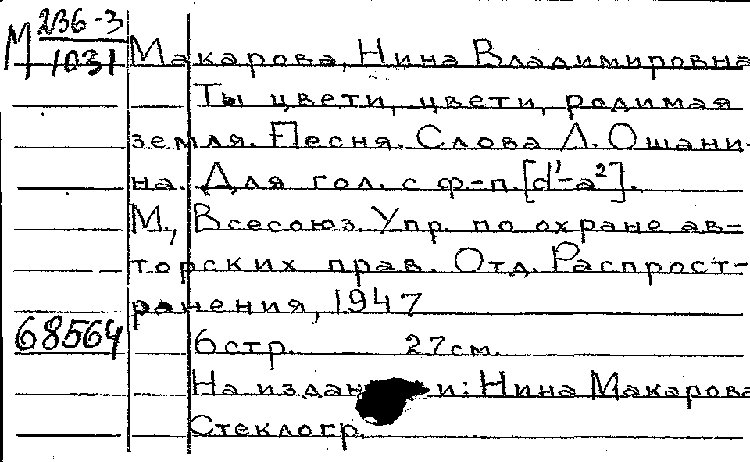 М 236-3
1031
Макарова, Нина Владимировна
Ты цвети, цвети, родимая
земля. Песня. Слова Л. Ошани-
на. Для гол. с ф-п. [d¹-a²].
М., Всесоюз. Упр. по охране ав-
торских прав. Отд. Распрост-
ранения, 1947
68564
6 стр. 27 см.
На издан и: Нина Макарова
Стеклогр.